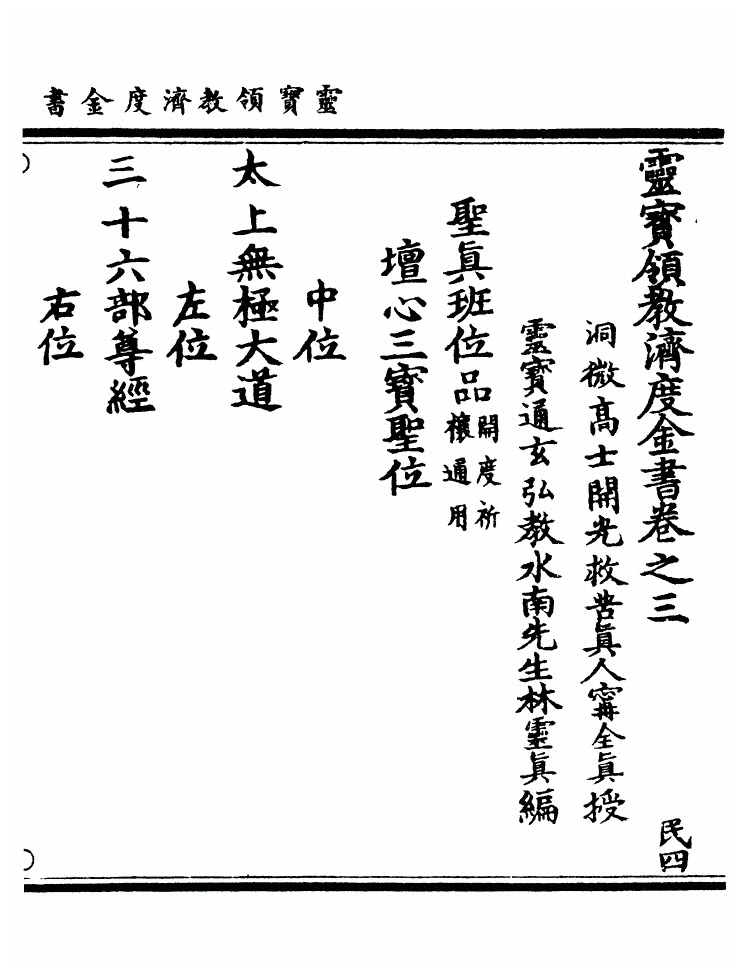 靈寶領教濟度金書
靈寶領教濟度金書卷之三
民四
洞微高士開光救苦眞人甯全眞授
靈寶通玄弘教水南先生林靈眞編
聖眞班位品
開度祈
禳通用
壇心三寶聖位
中位
太上無極大道
左位
三十六部尊經
右位